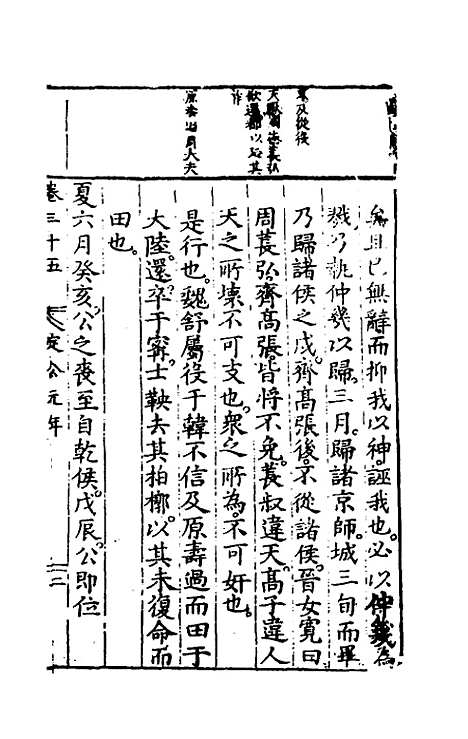 矣且已無辭而抑我以神誣我也必以仲幾為
戮乃執仲幾以歸三月歸諸京師城三旬而畢
乃歸諸侯之戍齊高張後不從諸侯晉女寬曰
周萇弘齊高張皆將不免萇叔違天高子違人
天之所壞不可支也衆之所為不可奸也
是行也魏舒屬役于韓不信及原壽過而田于
大陸還卒于甯士鞅去其柏槨以其未復命而
田也
夏六月癸亥公之喪至自乾侯戊辰公即位
及從後
天厭周德萇弘
欲遷都以延其
祚
原壽過周大夫
卷三十五 定公元年 二